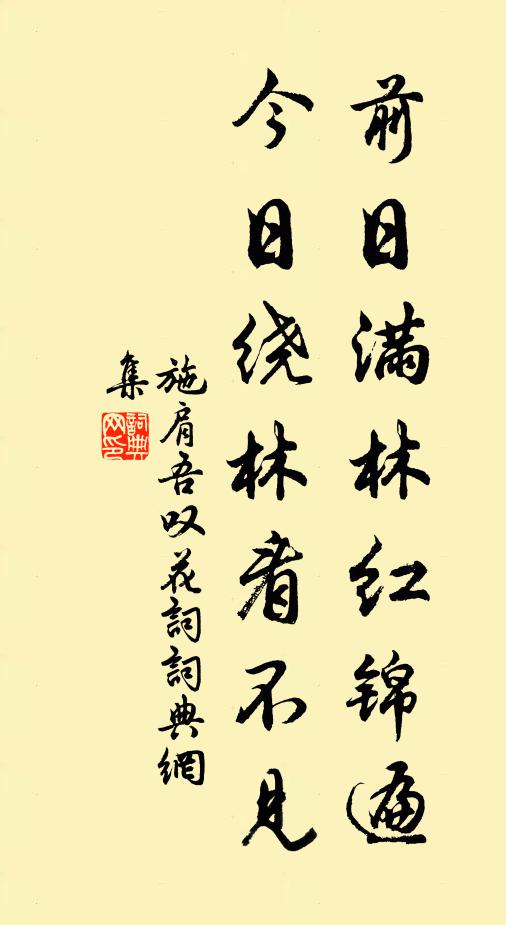 前日满林红锦遍
今日绕林看不见
施肩吾叹花詞詞典網
集
詞典
网印